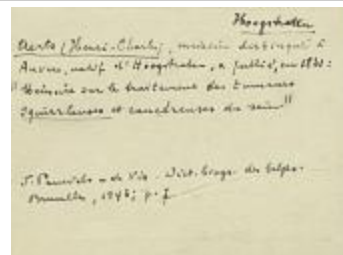 Hoogstraten
Aerts (Henri-Charles), médecin distingué à
Anvers, natif d'Hoogstraten, a publié, en 1841:
"Mémoire sur le traitement des tumeurs
squirrheuses et cancéreuses du sein"
de Vis. Dict. biogr. des Belges.
Bruxelles, 1848; p. 7